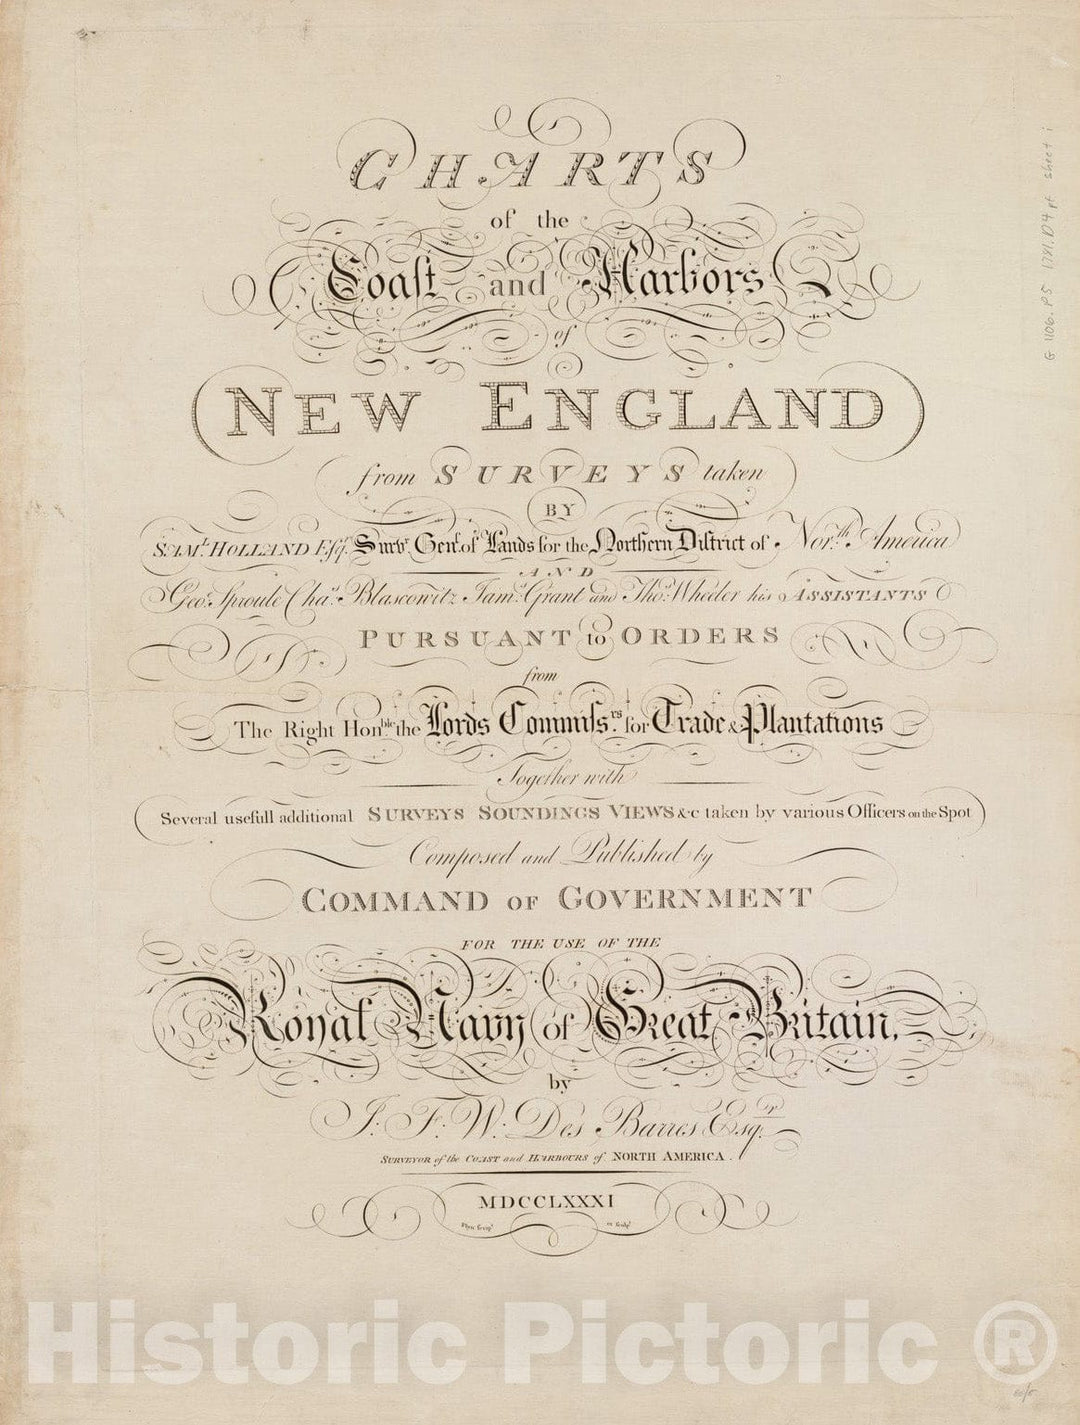 CHARTS
of the
Coast and Harbors
of
NEW ENGLAND
from SURVEYS taken
BY
SAMl. HOLLAND Esqr. Survr. Genl. of Lands for the Northern District of North. America
AND
Geo. Sproule Chas. Blascowitz Jams. Grant and Thos. Wheeler his ASSISTANTS
PURSUANT to ORDERS
from
The Right Honble. the Lords Commissrs. for Trade & Plantations
Together with
Several usefull additional SURVEYS SOUNDINGS VIEWS &c taken by various Officers on the Spot
Composed and Published by
COMMAND OF GOVERNMENT
FOR THE USE OF THE
Royal Navy of Great Britain.
by
J. F. W. Des Barres Esqr.
SURVEYOR of the COAST and HARBOURS of NORTH AMERICA.
MDCCLXXXI
G 1106.P5 1781.D4 pt sheet 1
Historic Pictoric ®